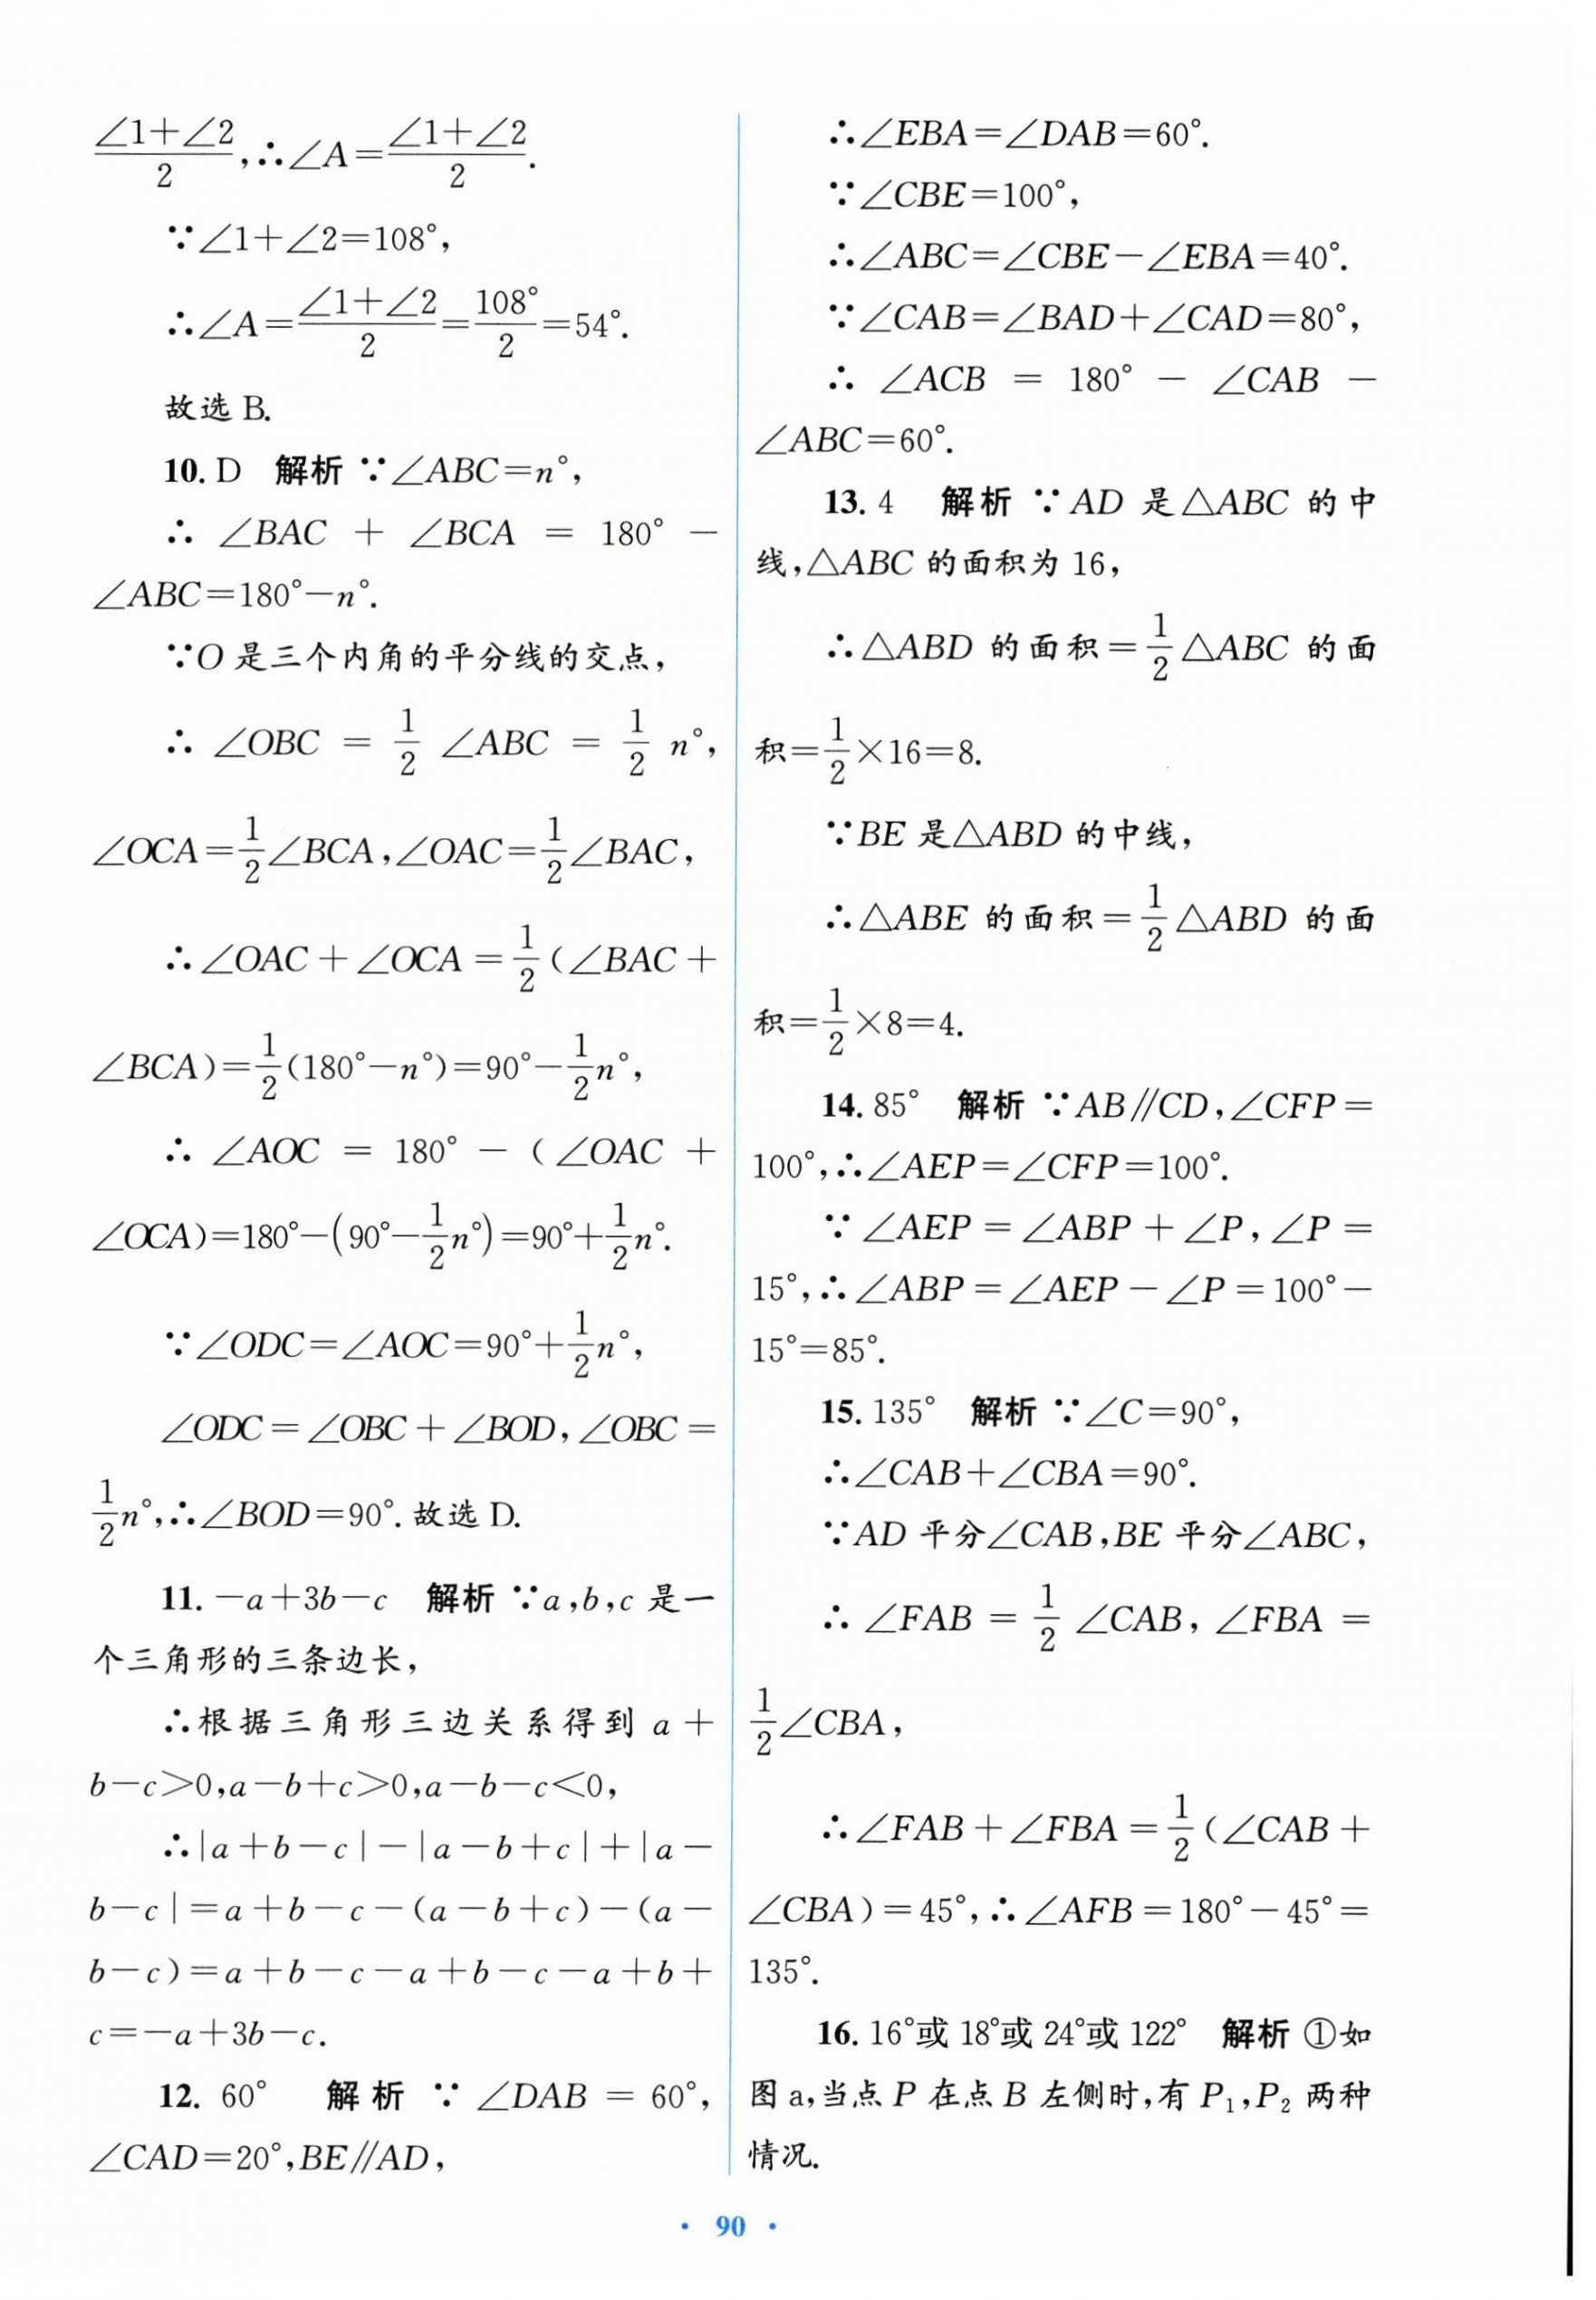 $\frac{∠1+∠2}{2}$,∴∠A=$\frac{∠1+∠2}{2}$.
∵∠1+∠2=108°,
∴∠A=$\frac{∠1+∠2}{2}$=$\frac{108°}{2}$=54°.
故选 B.
10. D 解析 ∵∠ABC=n°,
∴ ∠BAC + ∠BCA = 180° −
∠ABC=180°−n°.
∵O 是三个内角的平分线的交点,
∴ ∠OBC = $\frac{1}{2}$ ∠ABC = $\frac{1}{2}$ n°,
∠OCA=$\frac{1}{2}$∠BCA,∠OAC=$\frac{1}{2}$∠BAC,
∴∠OAC+∠OCA=$\frac{1}{2}$(∠BAC+
∠BCA)=$\frac{1}{2}$(180°−n°)=90°−$\frac{1}{2}$n°,
∴ ∠AOC = 180° − (∠OAC +
∠OCA)=180°−(90°−$\frac{1}{2}$n°)=90°+$\frac{1}{2}$n°.
∵∠ODC=∠AOC=90°+$\frac{1}{2}$n°,
∠ODC=∠OBC+∠BOD,∠OBC=
$\frac{1}{2}$n°,∴∠BOD=90°.故选 D.
11. −a+3b−c 解析 ∵a,b,c 是一
个三角形的三条边长,
∴根据三角形三边关系得到 a+
b−c>0,a−b+c>0,a−b−c<0,
∴|a+b−c|−|a−b+c|+|a−
b−c|=a+b−c−(a−b+c)−(a−
b−c)=a+b−c−a+b−c−a+b+
c=−a+3b−c.
12. 60° 解析 ∵ ∠DAB = 60°,
∠CAD=20°,BE∥AD,
∴∠EBA=∠DAB=60°.
∵∠CBE=100°,
∴∠ABC=∠CBE−∠EBA=40°.
∵∠CAB=∠BAD+∠CAD=80°,
∴ ∠ACB = 180° − ∠CAB −
∠ABC=60°.
13. 4 解析 ∵AD 是△ABC 的中
线,△ABC 的面积为 16,
∴△ABD 的面积=$\frac{1}{2}$△ABC 的面
积=$\frac{1}{2}$×16=8.
∵BE 是△ABD 的中线,
∴△ABE 的面积=$\frac{1}{2}$△ABD 的面
积=$\frac{1}{2}$×8=4.
14. 85° 解析 ∵AB∥CD,∠CFP=
100°,∴∠AEP=∠CFP=100°.
∵∠AEP=∠ABP+∠P,∠P=
15°,∴∠ABP=∠AEP−∠P=100°−
15°=85°.
15. 135° 解析 ∵∠C=90°,
∴∠CAB+∠CBA=90°.
∵AD 平分∠CAB,BE 平分∠ABC,
∴ ∠FAB = $\frac{1}{2}$ ∠CAB, ∠FBA =
$\frac{1}{2}$∠CBA,
∴∠FAB+∠FBA=$\frac{1}{2}$(∠CAB+
∠CBA)=45°,∴∠AFB=180°−45°=
135°.
16. 16°或 18°或 24°或 122° 解析 ①如
图 a,当点 P 在点 B 左侧时,有 P₁,P₂ 两种
情况.
· 90 ·